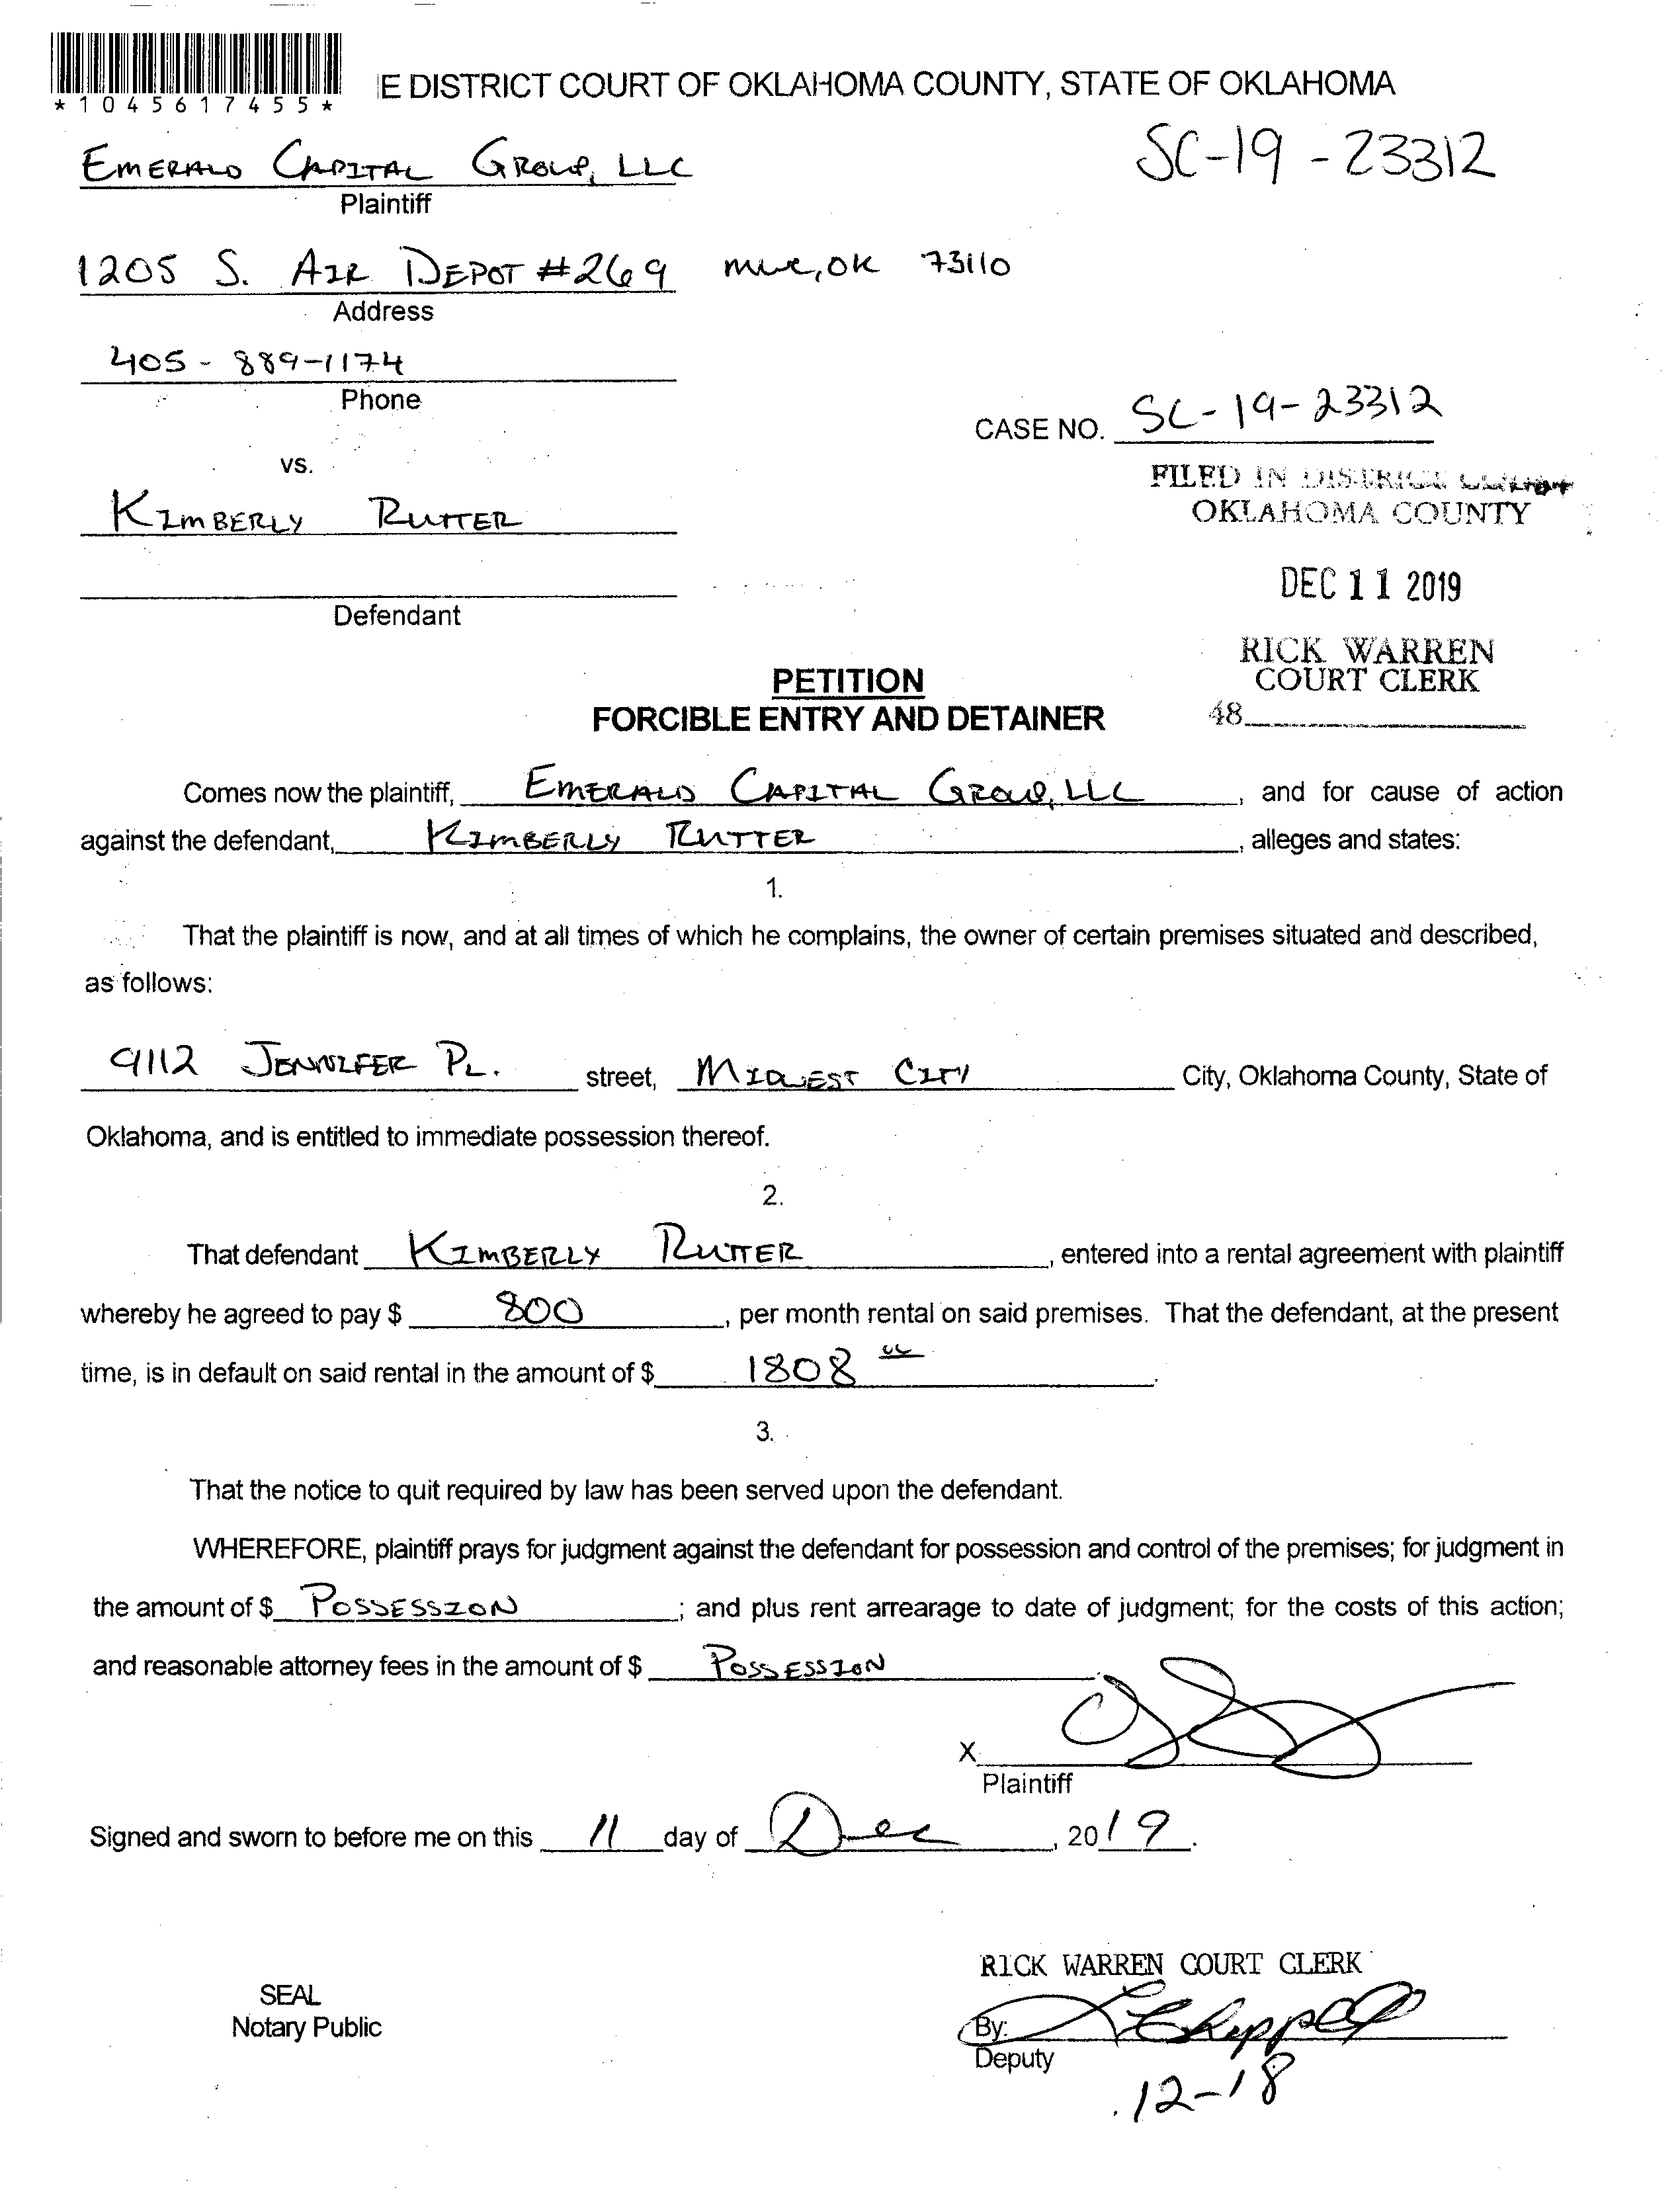 *1045617455*
E DISTRICT COURT OF OKLAHOMA COUNTY, STATE OF OKLAHOMA
EMERALD CAPITAL GROUP, LLC
SC-19-23312
Plaintiff
1205 S. AIR DEPOT #269 MWC, OK 73110
Address
405-889-1174
Phone
CASE NO. SC-19-23312
vs.
FILED IN DISTRICT COURT
OKLAHOMA COUNTY
KIMBERLY RUTTER
DEC 11 2019
Defendant
RICK WARREN
COURT CLERK
48
PETITION
FORCIBLE ENTRY AND DETAINER
Comes now the plaintiff, EMERALD CAPITAL GROUP, LLC, and for cause of action
against the defendant, KIMBERLY RUTTER, alleges and states:
1.
That the plaintiff is now, and at all times of which he complains, the owner of certain premises situated and described,
as follows:
9112 JENNIFER PL. street, MIDWEST CITY City, Oklahoma County, State of
Oklahoma, and is entitled to immediate possession thereof.
2.
That defendant KIMBERLY RUTTER, entered into a rental agreement with plaintiff
whereby he agreed to pay $ 800, per month rental on said premises. That the defendant, at the present
time, is in default on said rental in the amount of $ 1808 00.
3.
That the notice to quit required by law has been served upon the defendant.
WHEREFORE, plaintiff prays for judgment against the defendant for possession and control of the premises; for judgment in
the amount of $ POSSESSION; and plus rent arrearage to date of judgment; for the costs of this action;
and reasonable attorney fees in the amount of $ POSSESSION.
X
Plaintiff
Signed and sworn to before me on this 11 day of Dec, 2019.
RICK WARREN COURT CLERK
SEAL
Notary Public
By:
Deputy
12-18